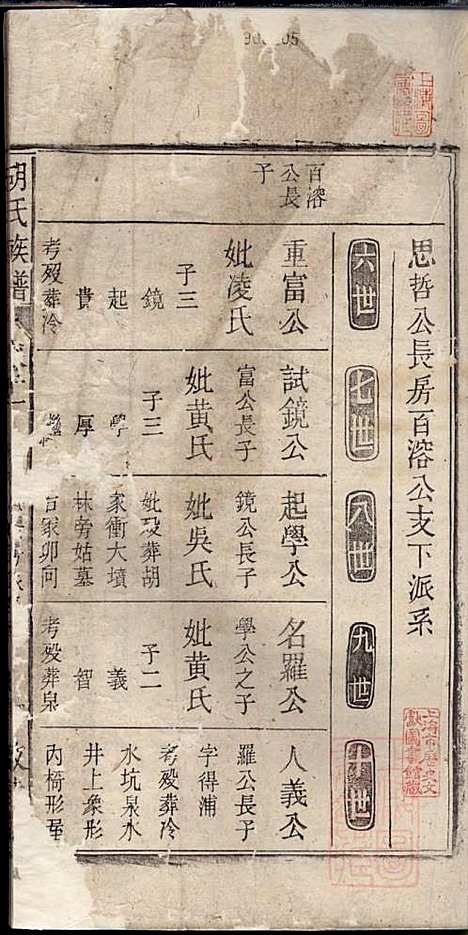 思哲公長房百溶公支下派系
六世
七世
八世
九世
十世
百溶
公長
子
重富公
妣凌氏
子三
鏡
起
貴
考殁葬冷
試鏡公
富公長子
妣黄氏
子三
學
厚
起學公
鏡公長子
妣吳氏
妣殁葬胡
家衝大墳
林旁姑墓
百家卯向
名羅公
學公之子
妣黄氏
子二
義
智
考殁葬泉
人義公
羅公長子
字得浦
考殁葬冷
水坑泉水
井上象形
內椅形
胡氏族譜
上海市歷史文
獻圖書館藏